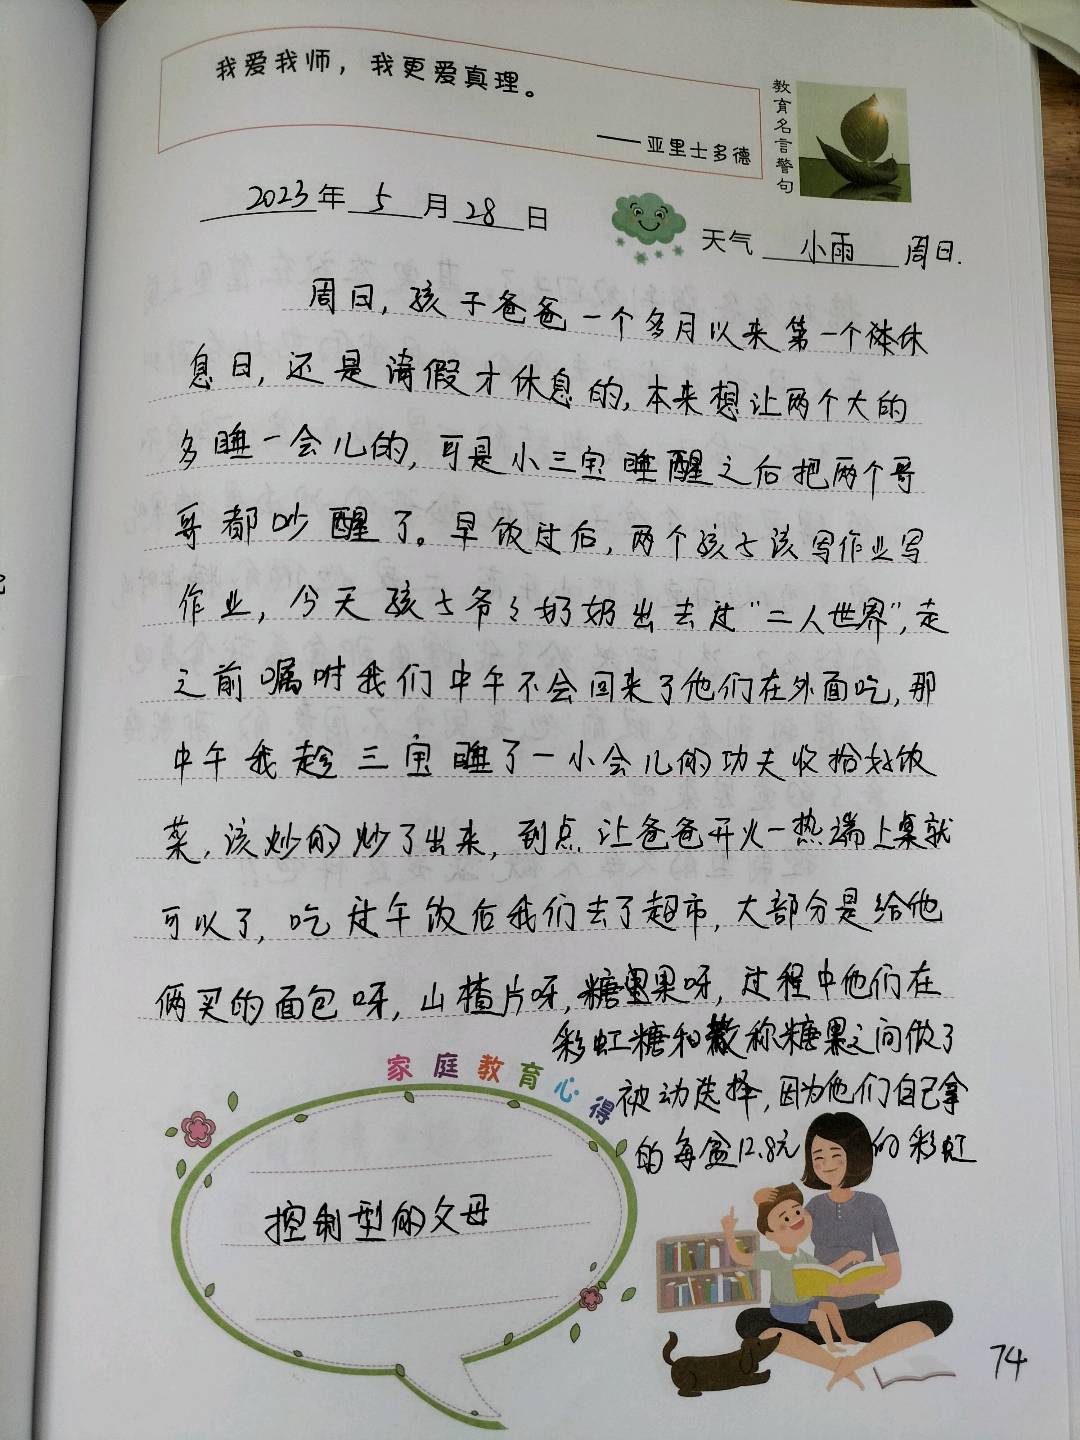 我爱我师，我更爱真理。
——亚里士多德
教育名言警句
2023年 5 月 28 日
天气 小雨 周日.
周日，孩子爸爸一个多月以来第一个休
息日，还是请假才休息的，本来想让两个大的
多睡一会儿的，可是小三宝睡醒之后把两个哥
哥都吵醒了。早饭过后，两个孩子该写作业写
作业，今天孩子爷爷奶奶出去过“二人世界”，走
之前嘱咐我们中午不会回来了他们在外面吃，那
中午我趁三宝睡了一小会儿的功夫收拾好饭
菜，该炒的炒了出来，到点让爸爸开火一热端上桌就
可以了，吃过午饭后我们去了超市，大部分是给他
俩买的面包呀，山楂片呀，糖果呀，过程中他们在
彩虹糖和散称糖果之间做了
被动选择，因为他们自己拿
的每盒12.8元的彩虹
家庭教育心得
控制型的父母
74